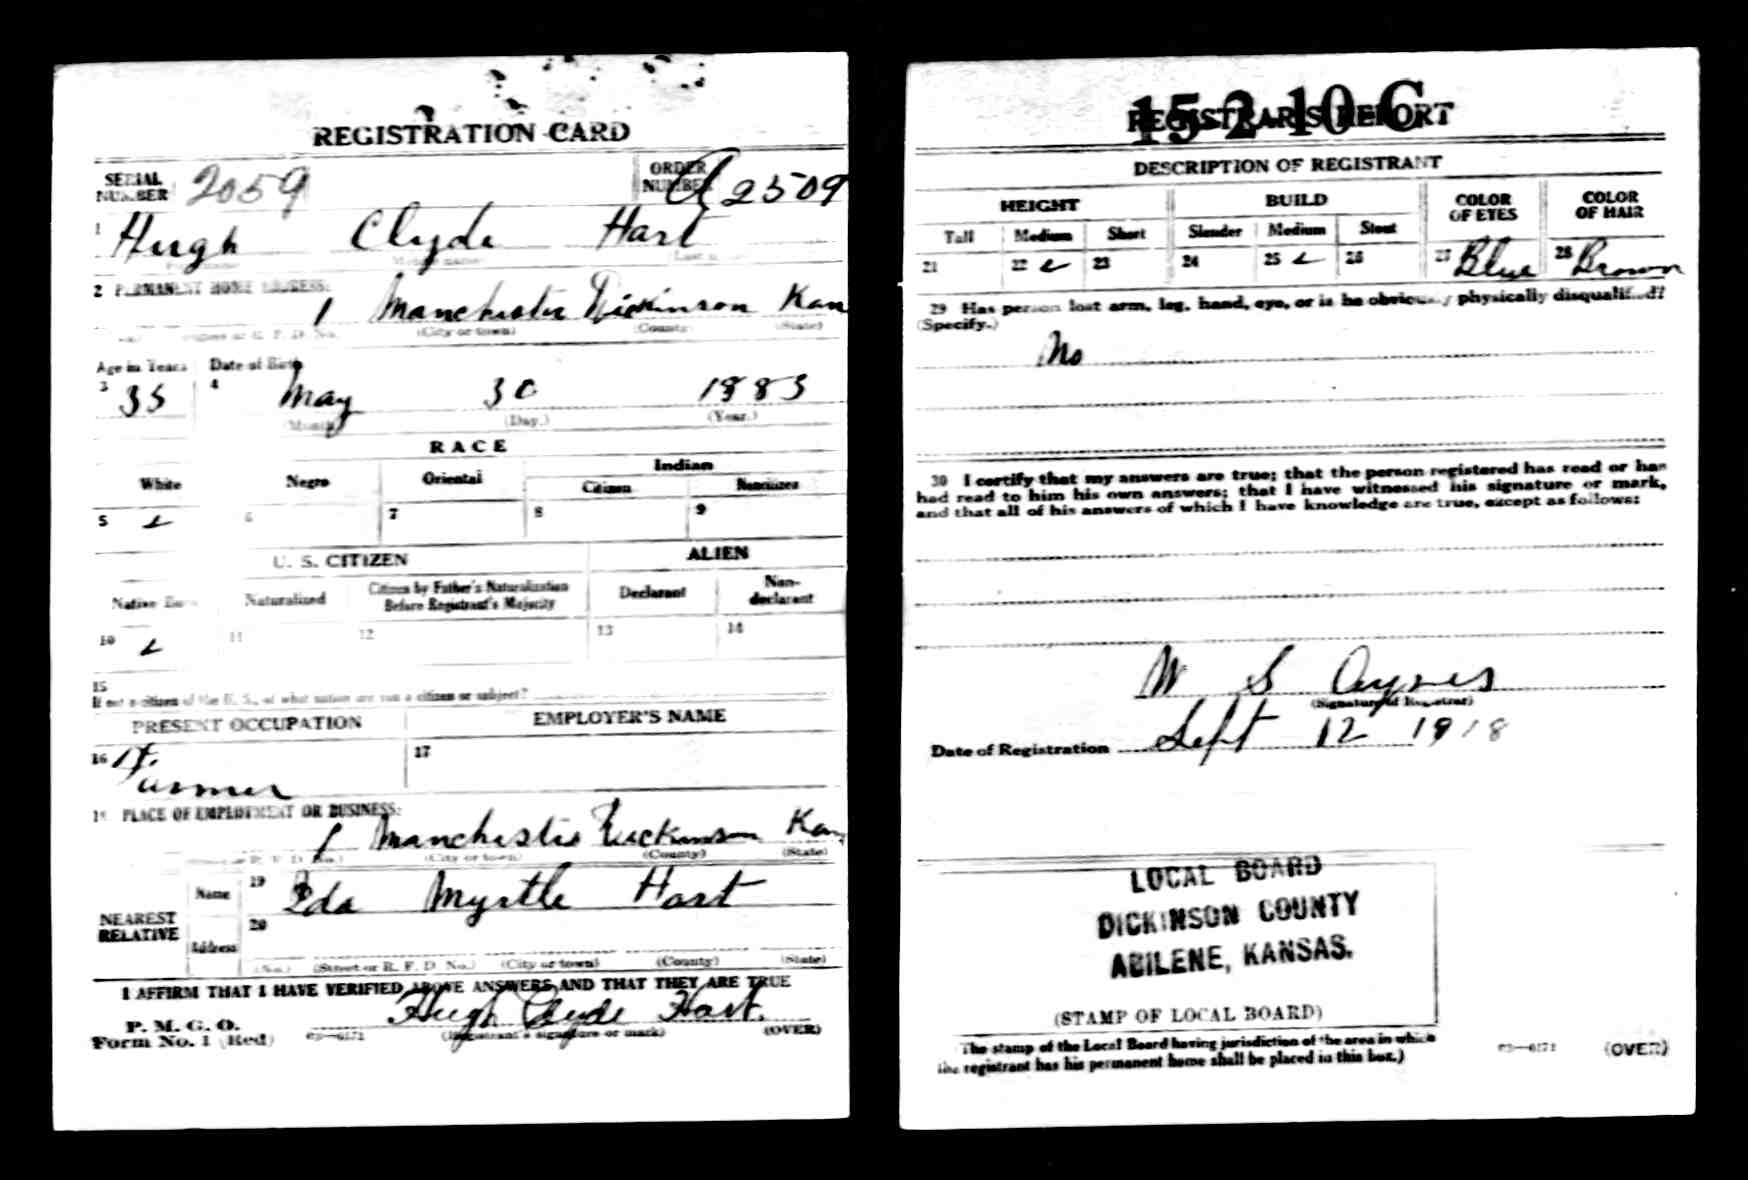 REGISTRATION CARD
SERIAL NUMBER 2059 ORDER NUMBER A2509
1 Hugh Clyde Hart
2 PERMANENT HOME ADDRESS:
1 Manchester Dickinson Kan
(City or town) (County) (State)
Age in Years Date of Birth
3 35 4 May 30 1883
(Month) (Day.) (Year.)
RACE
White Negro Oriental Indian
Citizen Noncitizen
5 6 7 8 9
U. S. CITIZEN ALIEN
Native Born Naturalized Citizen by Father's Naturalization Before Registrant's Majority Declarant Non-declarant
10 11 12 13 14
15
If not a citizen of the U. S., of what nation are you a citizen or subject?
PRESENT OCCUPATION EMPLOYER'S NAME
16 Farmer 17
PLACE OF EMPLOYMENT OR BUSINESS:
1 Manchester Dickinson Kan
(City or town) (County) (State)
NEAREST RELATIVE
Name 19 Ida Myrtle Hart
Address 20
(No.) (Street or R. F. D. No.) (City or town) (County) (State)
I AFFIRM THAT I HAVE VERIFIED ABOVE ANSWERS AND THAT THEY ARE TRUE
P. M. G. O.
Form No. 1 (Red) 03—6171 Hugh Clyde Hart.
(Registrant's signature or mark) (OVER)
15-2-10 C
REGISTRAR'S REPORT
DESCRIPTION OF REGISTRANT
HEIGHT BUILD COLOR OF EYES COLOR OF HAIR
Tall Medium Short Slender Medium Stout
21 22 23 24 25 26 27 Blue 28 Brown
29 Has person lost arm, leg, hand, eye, or is he obviously physically disqualified?
(Specify.)
No
30 I certify that my answers are true; that the person registered has read or has
had read to him his own answers; that I have witnessed his signature or mark,
and that all of his answers of which I have knowledge are true, except as follows:
W S
(Signature of Registrar)
Date of Registration Sept 12 1918
LOCAL BOARD
DICKINSON COUNTY
ABILENE, KANSAS.
(STAMP OF LOCAL BOARD)
The stamp of the Local Board having jurisdiction of the area in which
the registrant has his permanent home shall be placed in this box.)
03—6171 (OVER)